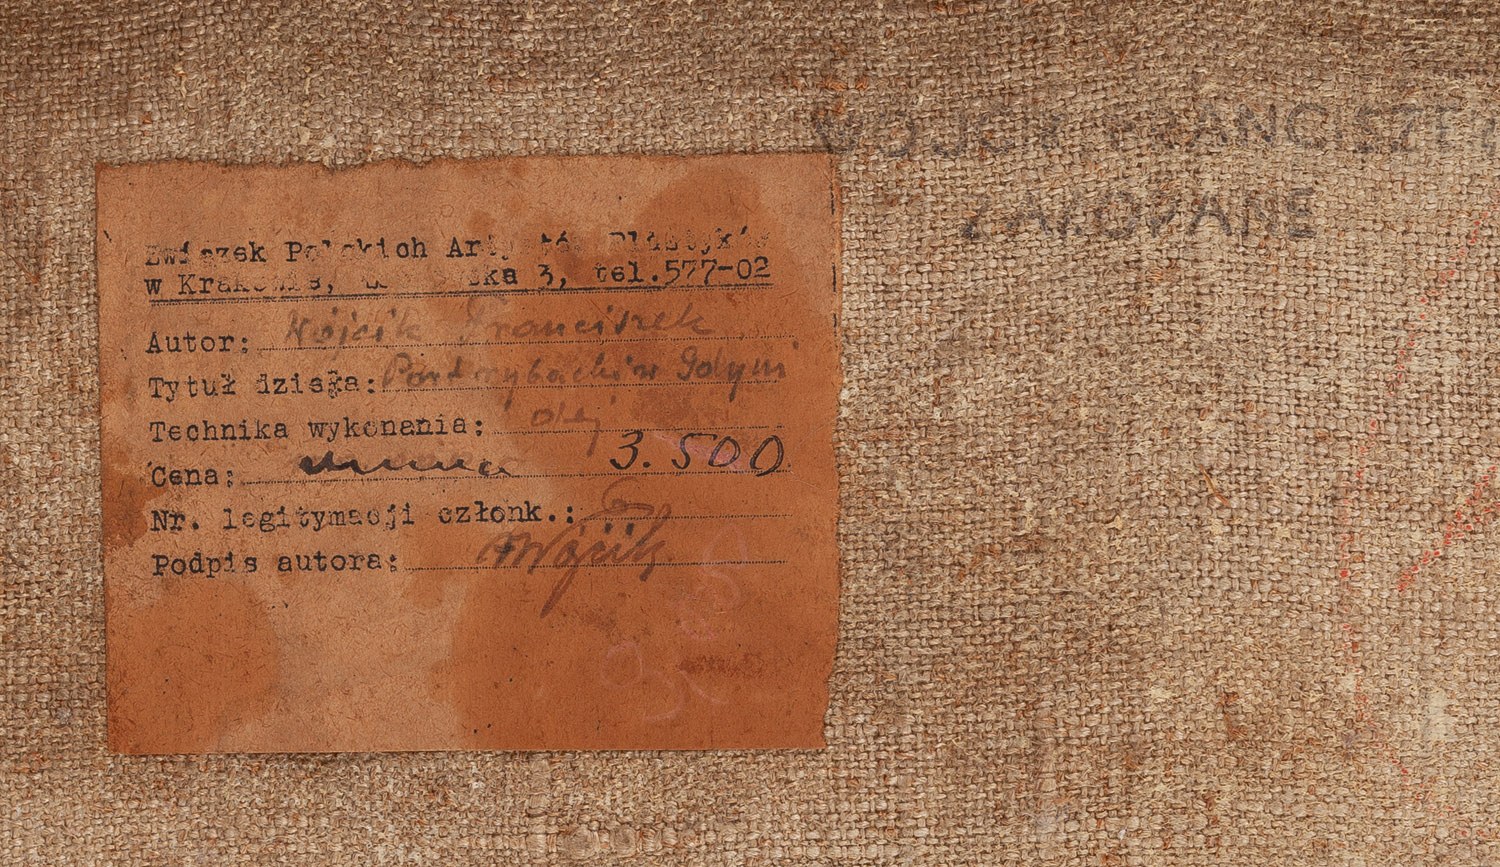 WÓJCIK FRANCISZEK
ZAKOPANE
Związek Polskich Artystów Plastyków
w Krakowie, 3, tel.577-02
Autor: Wójcik Franciszek
Tytuł dzieła: Port rybacki w Gdyni
Technika wykonania: olej
Cena: 3.500
Nr. legitymacji członk.:
Podpis autora: Wójcik